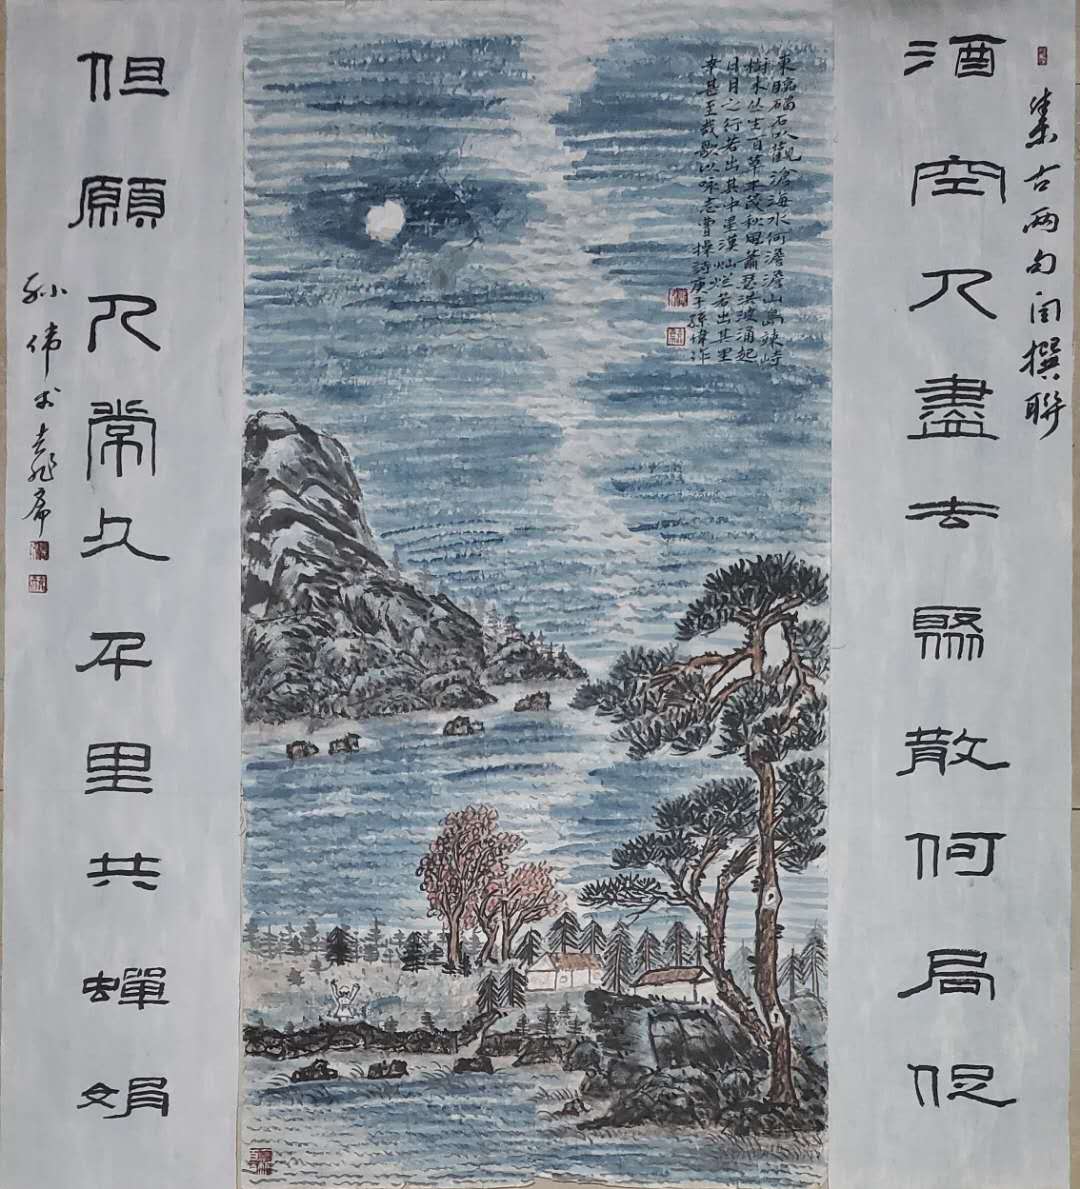 集古兩句自撰聯
酒空人盡去聚散何局促
東臨碣石以觀滄海水何澹澹山島竦峙
樹木丛生百草丰茂秋風蕭瑟洪波涌起
日月之行若出其中星漢灿烂若出其里
幸甚至哉歌以咏志曹操詩庚子孫偉作
但願人常久千里共蟬娟
孙伟书